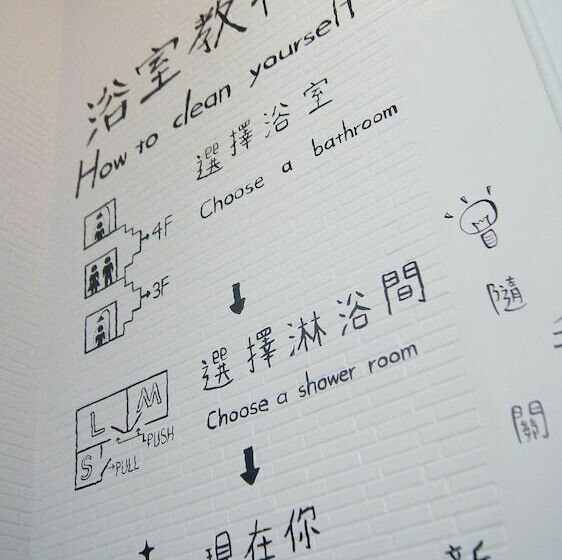 浴室教
How to clean yourself
選擇浴室
Choose a bathroom
4F
3F
選擇淋浴間
Choose a shower room
L M
PUSH
S
PULL
現在你
隨
關